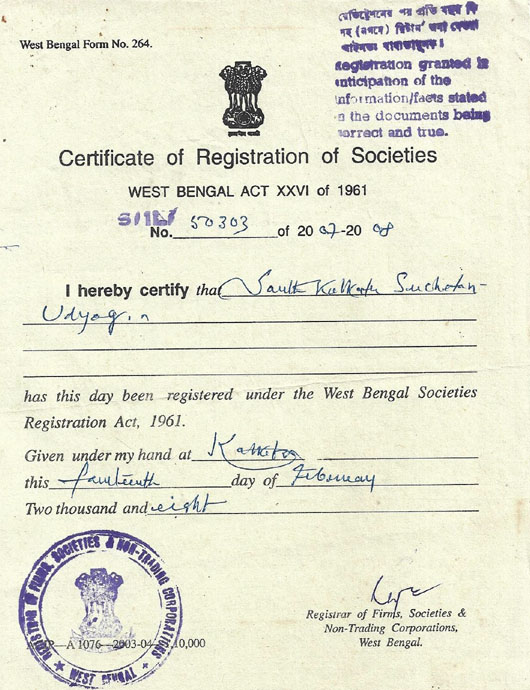 West Bengal Form No. 264.
রেজিষ্ট্রেশনের পর প্রতি বছর
Registration granted in
anticipation of the
information/facts stated
in the documents being
correct and true.
Certificate of Registration of Societies
WEST BENGAL ACT XXVI of 1961
No. 50303 of 2007-2008
I hereby certify that South Kolkata Suchetan-
Udyog
has this day been registered under the West Bengal Societies
Registration Act, 1961.
Given under my hand at Kolkata
this fourteenth day of February
Two thousand and eight
REGISTRAR OF FIRMS, SOCIETIES & NON-TRADING CORPORATIONS
WEST BENGAL
A 1076 2003-04 10,000
Registrar of Firms, Societies &
Non-Trading Corporations,
West Bengal.